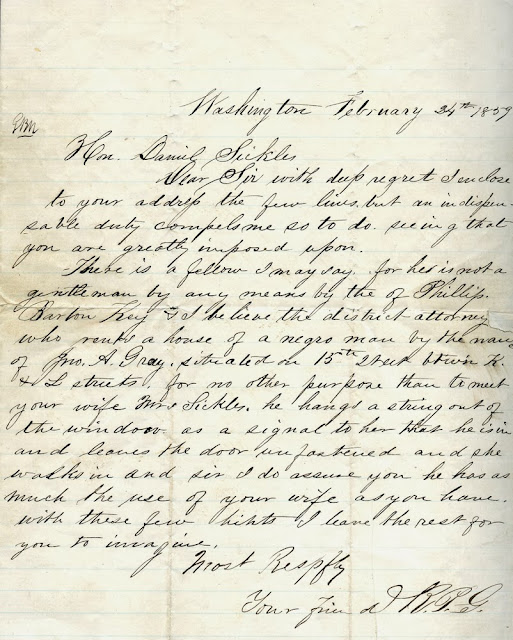 Washington February 24th 1859
Hon. Daniel Sickles
Dear Sir with deep regret I enclose
to your address the few lines but an indispen-
sable duty compels me so to do. seeing that
you are greatly imposed upon.
There is a fellow I may say. for he is not a
gentleman by any means by the of Phillip.
Barton Key & I believe the district attorney
who rents a house of a negro man by the name
of Jno. A. Gray. situated on 15th Street btwn K.
& L streets. for no other purpose than to meet
your wife Mrs Sickles. he hangs a string out of
the window as a signal to her that he is in
and leaves the door unfastened and she
walks in and sir I do assure you he has as
much the use of your wife as you have.
with these few hints I leave the rest for
you to imagine.
Most Respfly
Your friend R. P. G.